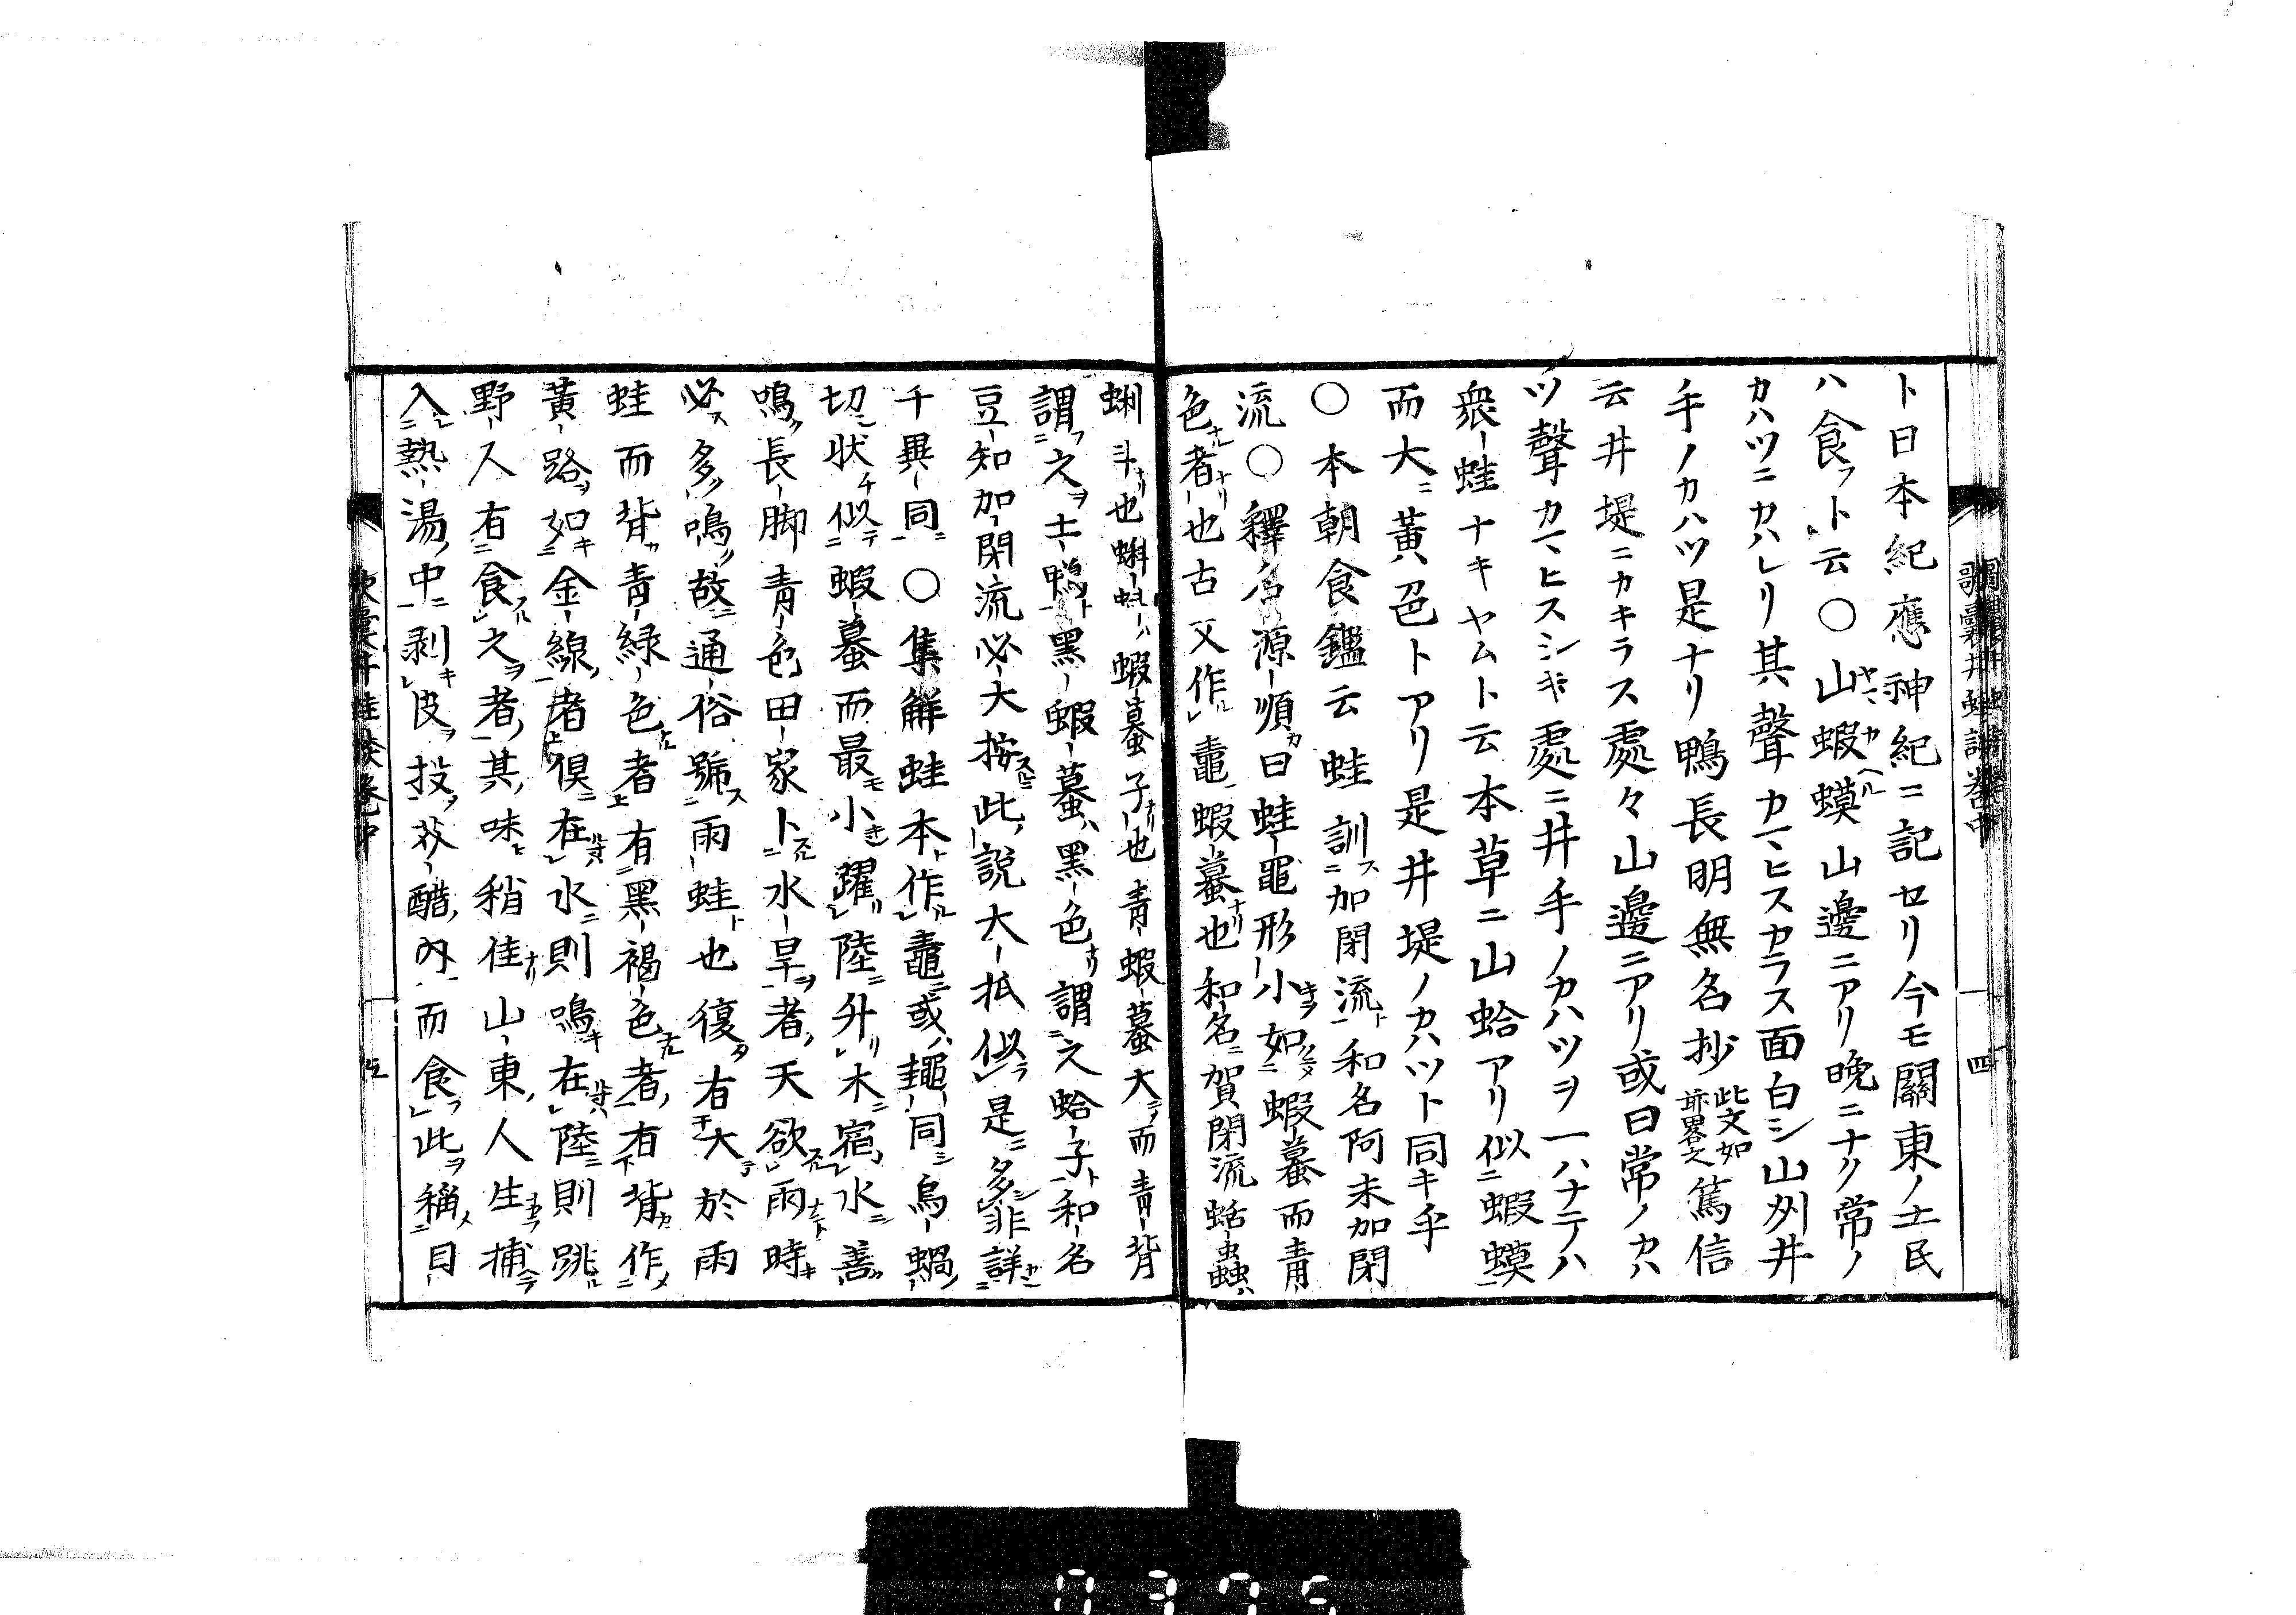 ト日本紀應神紀ニ記セリ今モ關東ノ土民
ハ食フト云○山蝦蟆山邊ニアリ晩ニナク常ノ
カハツニカハレリ其聲カマヒスカラス面白シ山州井
手ノカハツ是ナリ鴨長明無名抄此文如前畧之篤信
云井堤ニカキラス處々山邊ニアリ或曰常ノカハ
ツ聲カマヒスシキ處ニ井手ノカハツヲ一ハナテハ
衆蛙ナキヤムト云本草ニ山蛤アリ似ニ蝦蟆
而大ニ黃色トアリ是井堤ノカハツト同キ乎
○本朝食鑑云蛙訓ス加閉流ト和名阿末加閉
流○釋名源順カ曰蛙黽形小如蝦蟇而青
色者也古文作鼃蝦蟇也和名賀閉流蛞蟲
蝌斗也蝌蚪ハ蝦蟇子也青蝦蟇大而青背
謂之土鴨黑蝦蟇黑色謂之蛤子和名
豆知加閉流必大按此說大抵似是多非詳
千異同○集解蛙本作鼃或䵷同烏蝸
切狀似蝦蟇而最小躍陸升木宿水善
鳴長脚青色田家卜水旱者天欲雨時
必多鳴故通俗號雨蛙也復有大於雨
蛙而背青緑色者有黑褐色者有背作
黃路如金線者俱在水則鳴在陸則跳
野人有食之者其味稍佳山東人生捕
入熱湯中剥皮投芥醋內而食此稱目
歌囊井蛙談卷中
四
五